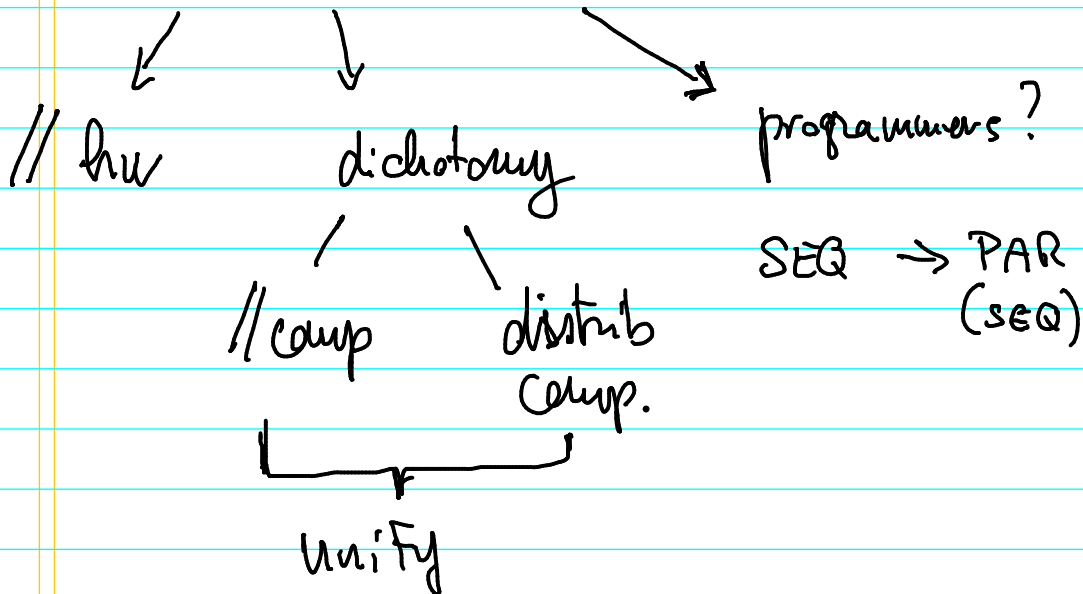 // hw
dichotomy
programmers?
SEQ → PAR
(SEQ)
// comp
distrib
comp.
unify